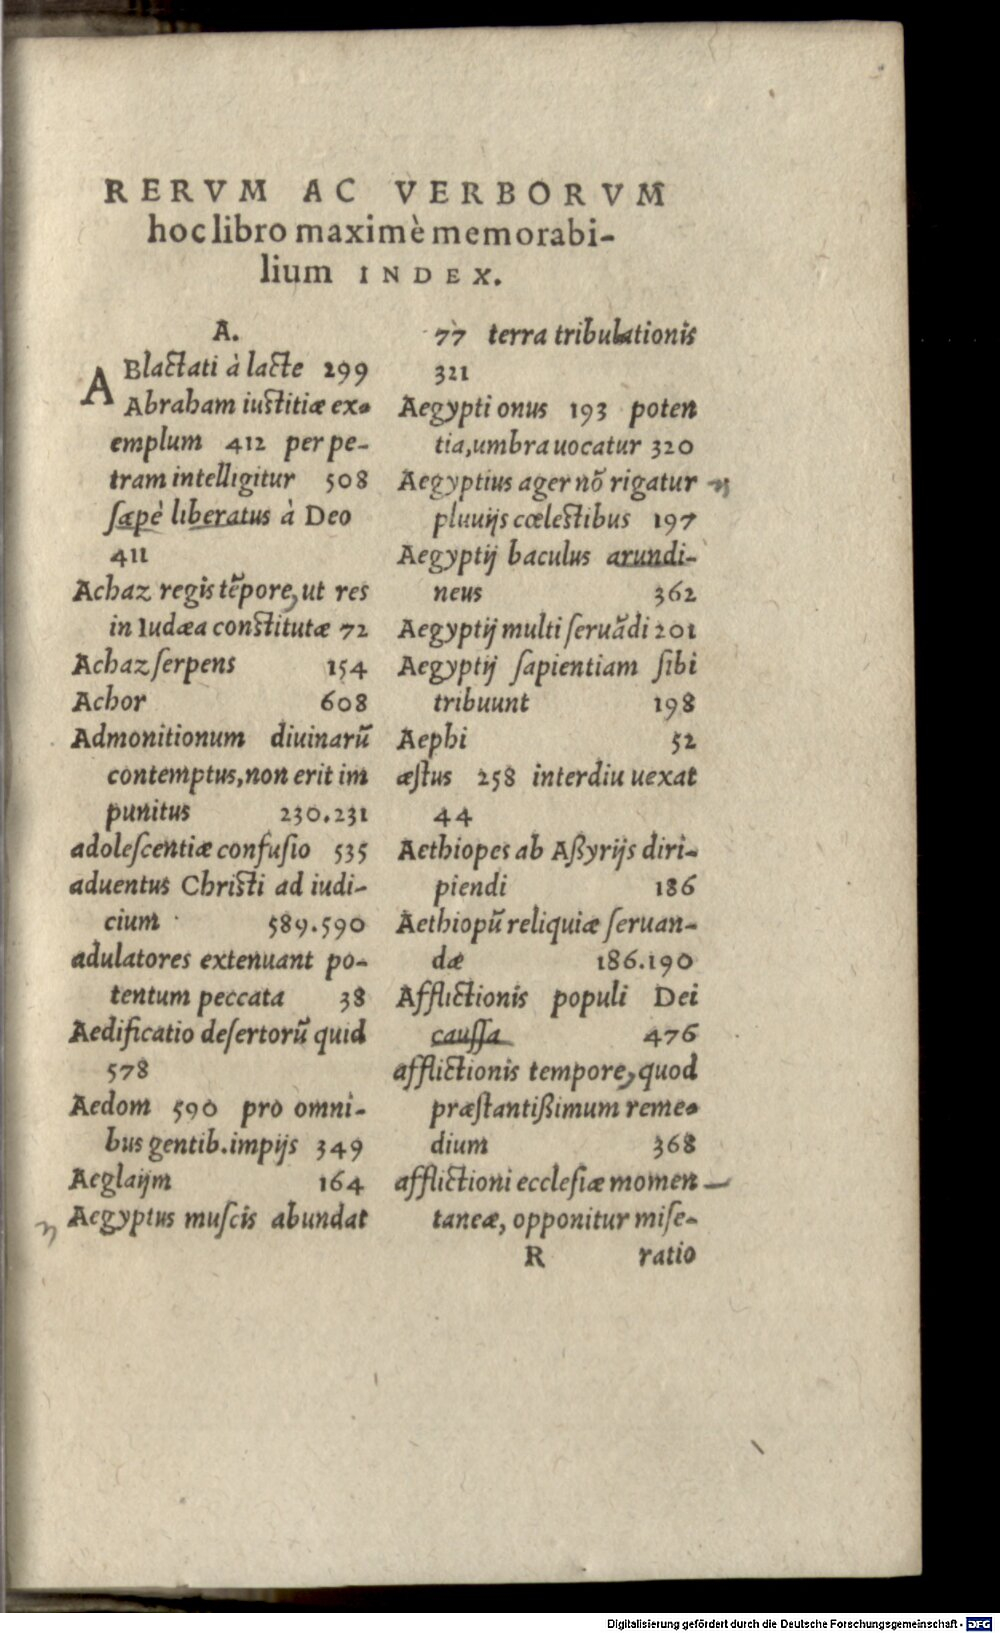 RERVM AC VERBORVM
hoc libro maximè memorabi-
lium INDEX.
A.
ABlactati à lacte 299
Abraham iustitiæ ex-
emplum 412 per pe-
tram intelligitur 508
sæpè liberatus à Deo
411
Achaz regis tẽpore, ut res
in Iudæa constitutæ 72
Achaz serpens 154
Achor 608
Admonitionum diuinarũ
contemptus, non erit im
punitus 230.231
adolescentiæ confusio 535
aduentus Christi ad iudi-
cium 589.590
adulatores extenuant po-
tentum peccata 38
Aedificatio desertorũ quid
578
Aedom 590 pro omni-
bus gentib. impijs 349
Aeglaijm 164
Aegyptus muscis abundat
77 terra tribulationis
321
Aegypti onus 193 poten
tia, umbra uocatur 320
Aegyptius ager nõ rigatur
pluuijs cœlestibus 197
Aegyptij baculus arundi-
neus 362
Aegyptij multi seruãdi 201
Aegyptij sapientiam sibi
tribuunt 198
Aephi 52
æstus 258 interdiu uexat
44
Aethiopes ab Aßyrijs diri-
piendi 186
Aethiopũ reliquiæ seruan-
dæ 186.190
Afflictionis populi Dei
caussa 476
afflictionis tempore, quod
præstantißimum reme-
dium 368
afflictioni ecclesiæ momen
taneæ, opponitur mise-
R ratio
Digitalisierung gefördert durch die Deutsche Forschungsgemeinschaft - DFG